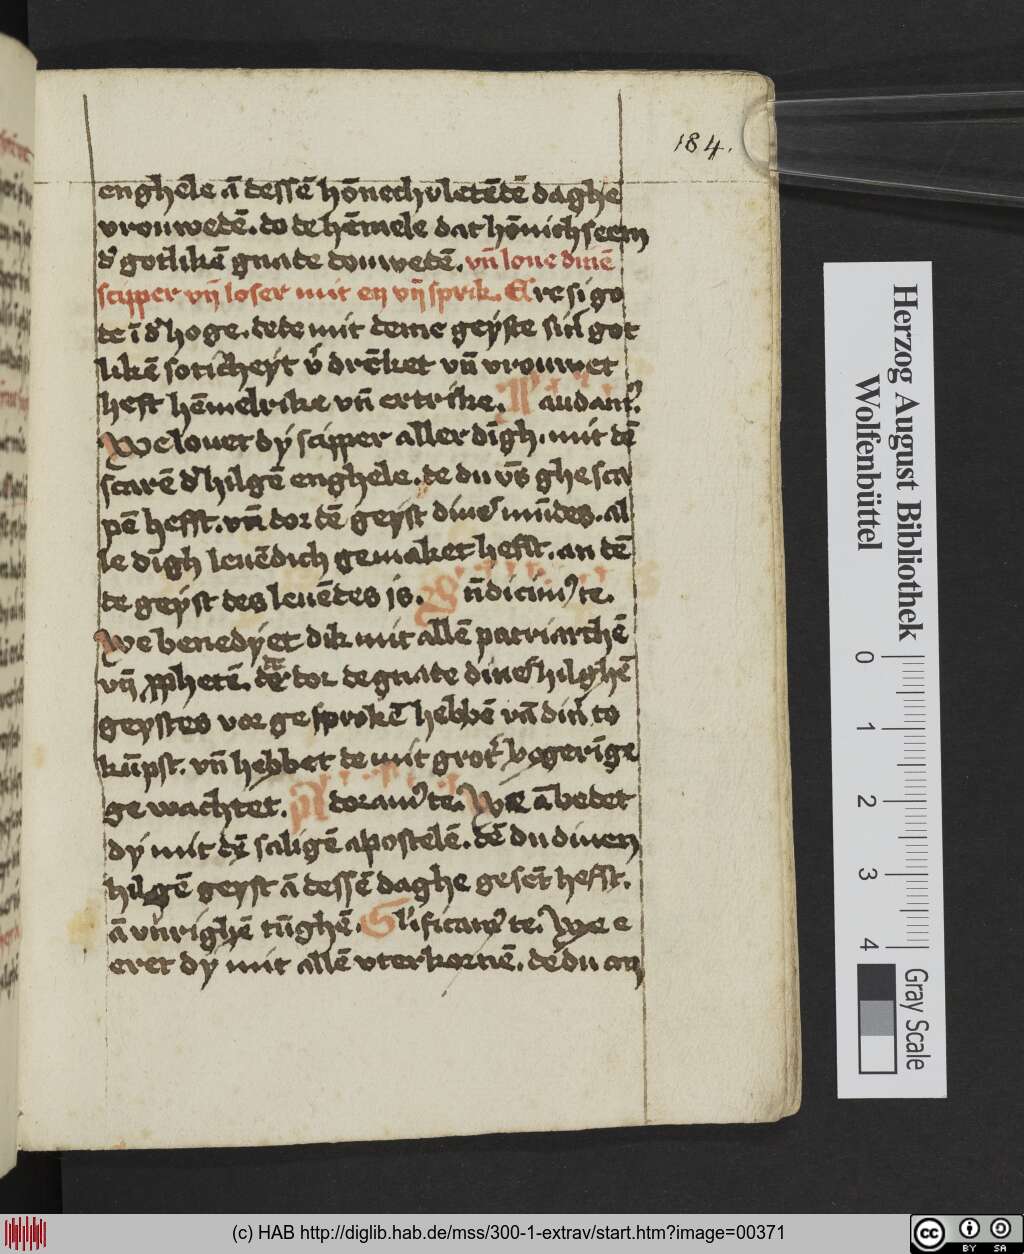 184.
enghēle ā dessē hōnechvletēdē daghe
vrouwedē. do de hēmele dat hōnichseem
d' gotlikē gnade douwedē. vn̄ loue dinē
scipper vn̄ loser mit en vn̄ sprik. Ere si go
de ī d' hoge. dede mit deme geyste sin' got
likē soticheyt v' drēket vn̄ vrouwet
heft hēmelrike vn̄ ertrike. Laudam9.
We louet dy scipper aller dīgh. mit dē
scarē d' hilgē enghēle. de du vn̄s ghe sca
pē hefft. vn̄ dor dē geyst diner mūdes. al
le dīgh leuēdich gemaket hefft. an dē
de geyst des leuēdes is. Bn̄dicim9 te.
We benedyet dik mit allē patriarchē
vn̄ pphetē. de dor de gnade diner hilghē
geystes vor ge sprokē hebbē vā din' to
kūpst. vn̄ hebbet de mit grot' begerīge
ge wachtet. Adoram9 te. We ābedet
dy mit dē saligē apostelē. dē du dinen
hilgē geyst ā dessē daghe gesēt hefft.
ā vūrighē tūghē. Gl'ificam9 te. We e
eret dy mit allē vterkornē. de du an
Herzog August Bibliothek
Wolfenbüttel
0 1 2 3 4
Gray Scale
(c) HAB http://diglib.hab.de/mss/300-1-extrav/start.htm?image=00371
cc BY SA